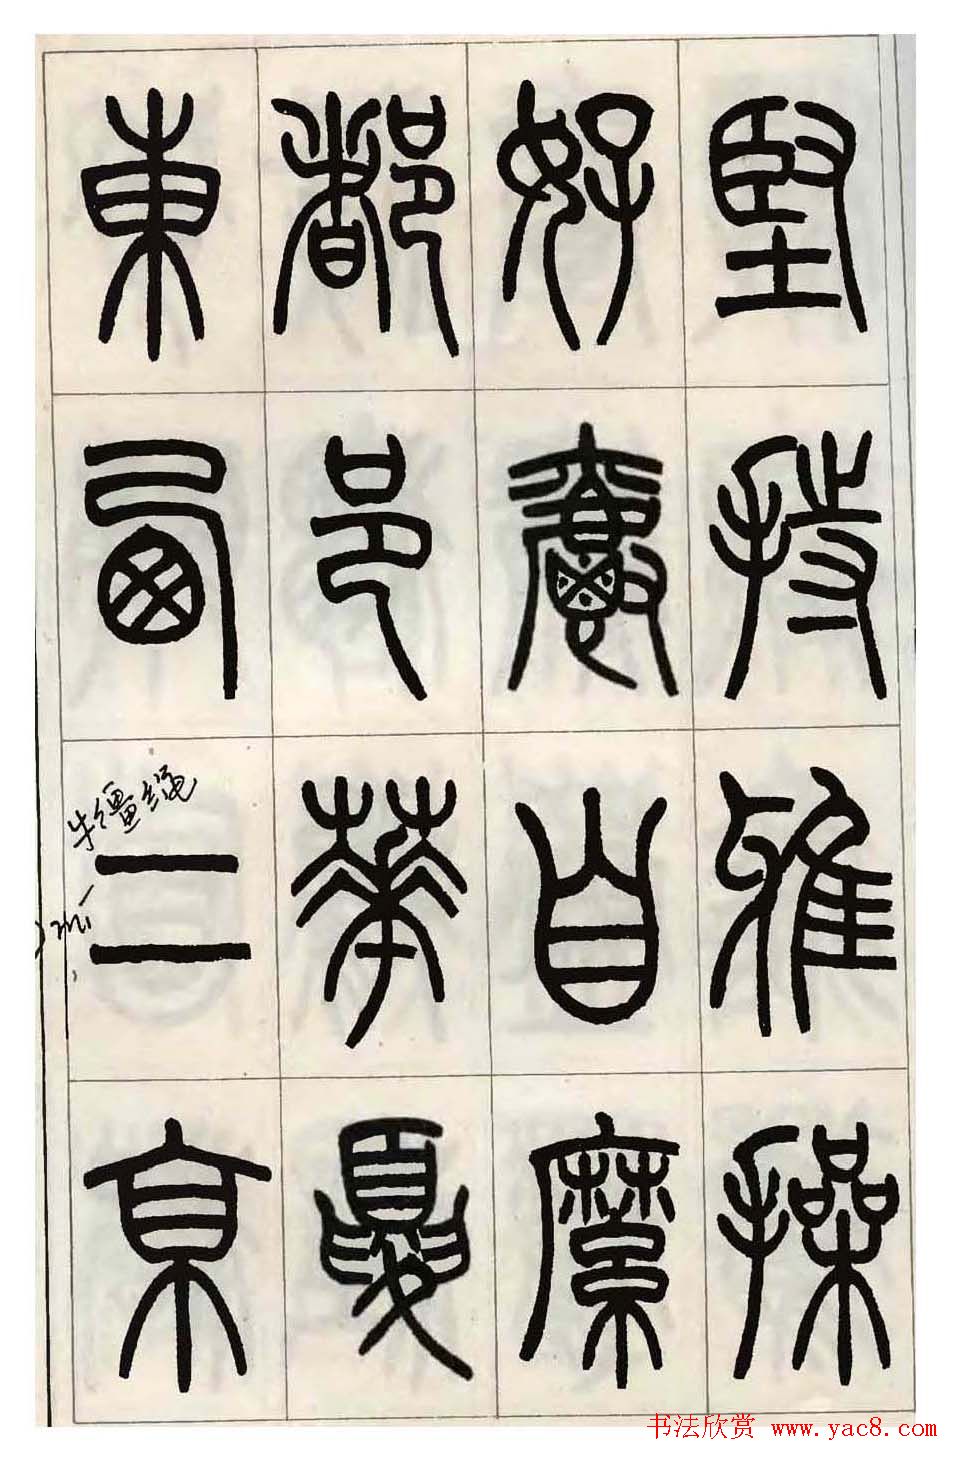 堅持雅操
好爵自縻
都邑華夏
東西二京
书法欣赏 www.yac8.com